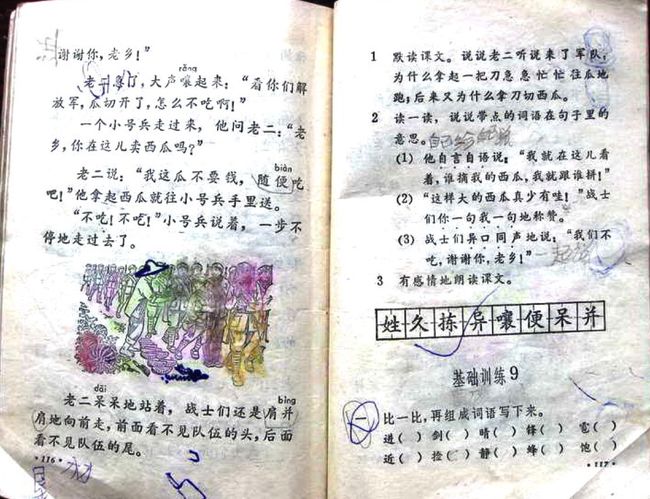 谢谢你,老乡!”
rǎng
老二急了,大声嚷起来:“看你们解
放军,瓜切开了,怎么不吃啊!”
一个小号兵走过来,他问老二:“老
乡,你在这儿卖西瓜吗?”
biàn
老二说:“我这瓜不要钱,随便吃
吧!”他拿起西瓜就往小号兵手里送。
“不吃!不吃!”小号兵说着,一步不
停地走过去了。
dāi bìng
老二呆呆地站着,战士们还是肩并
肩地向前走,前面看不见队伍的头,后面
看不见队伍的尾。
·116·
1 默读课文。说说老二听说来了军队,
为什么拿起一把刀急急忙忙往瓜地
跑;后来又为什么拿刀切西瓜。
2 读一读,说说带点的词语在句子里的
意思。
(1) 他自言自语说:“我就在这儿看
着,谁摘我的西瓜,我就跟谁拼!”
(2) “这样大的西瓜真少有哇!”战士
们你一句我一句地称赞。
(3) 战士们异口同声地说:“我们不
吃,谢谢你,老乡!”
3 有感情地朗读课文。
姓久拣异嚷便呆并
基础训练9
一 比一比,再组成词语写下来。
进( ) 剑( ) 晴( ) 锋( ) 雹( )
近( ) 捡( ) 静( ) 蜂( ) 饱( )
·117·